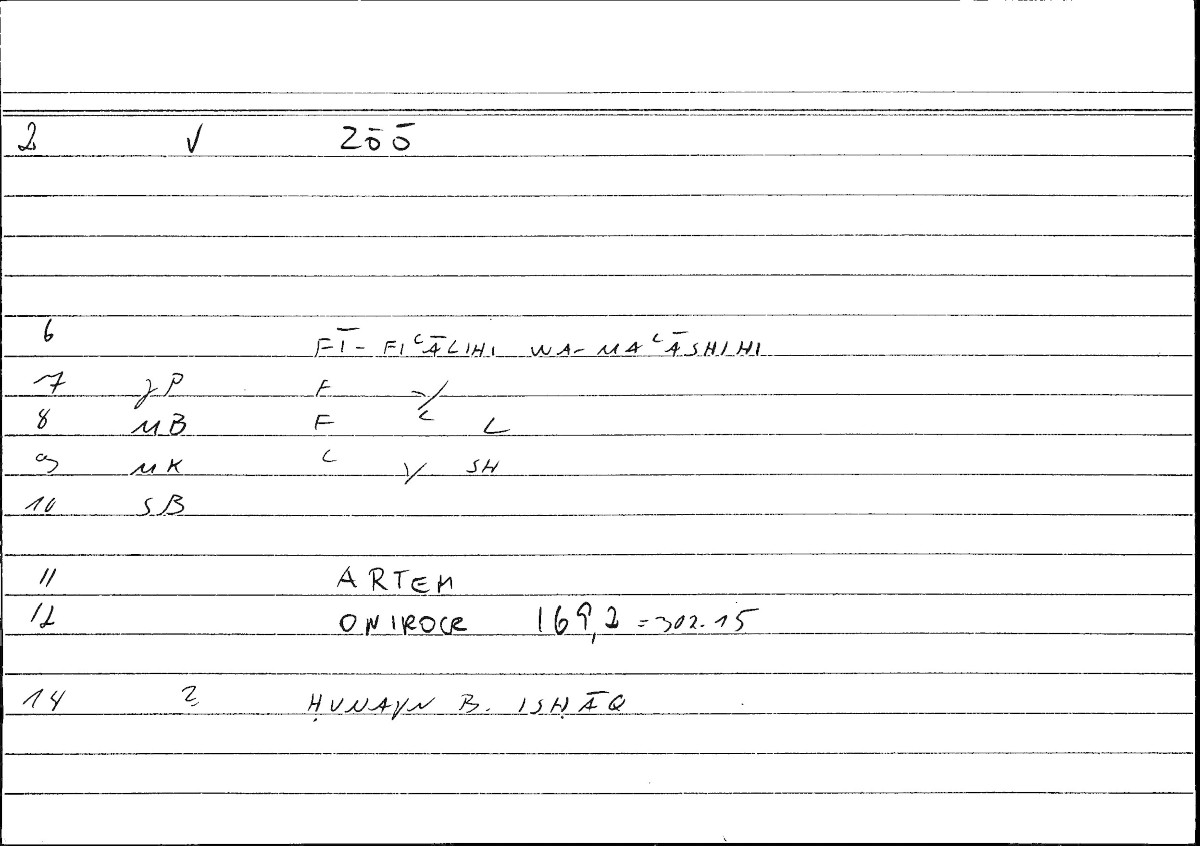 2 √ Zōō
6 FĪ- FIʿĀLIHI WA- MAʿĀSHIHI
7 JP F -/
8 MB F ʿ L
9 MK ʿ Y SH
10 SB
11 ARTEM
12 ONIROCR 169,2 = 302.15
14 2 ḤUNAYN B. ISḤĀQ